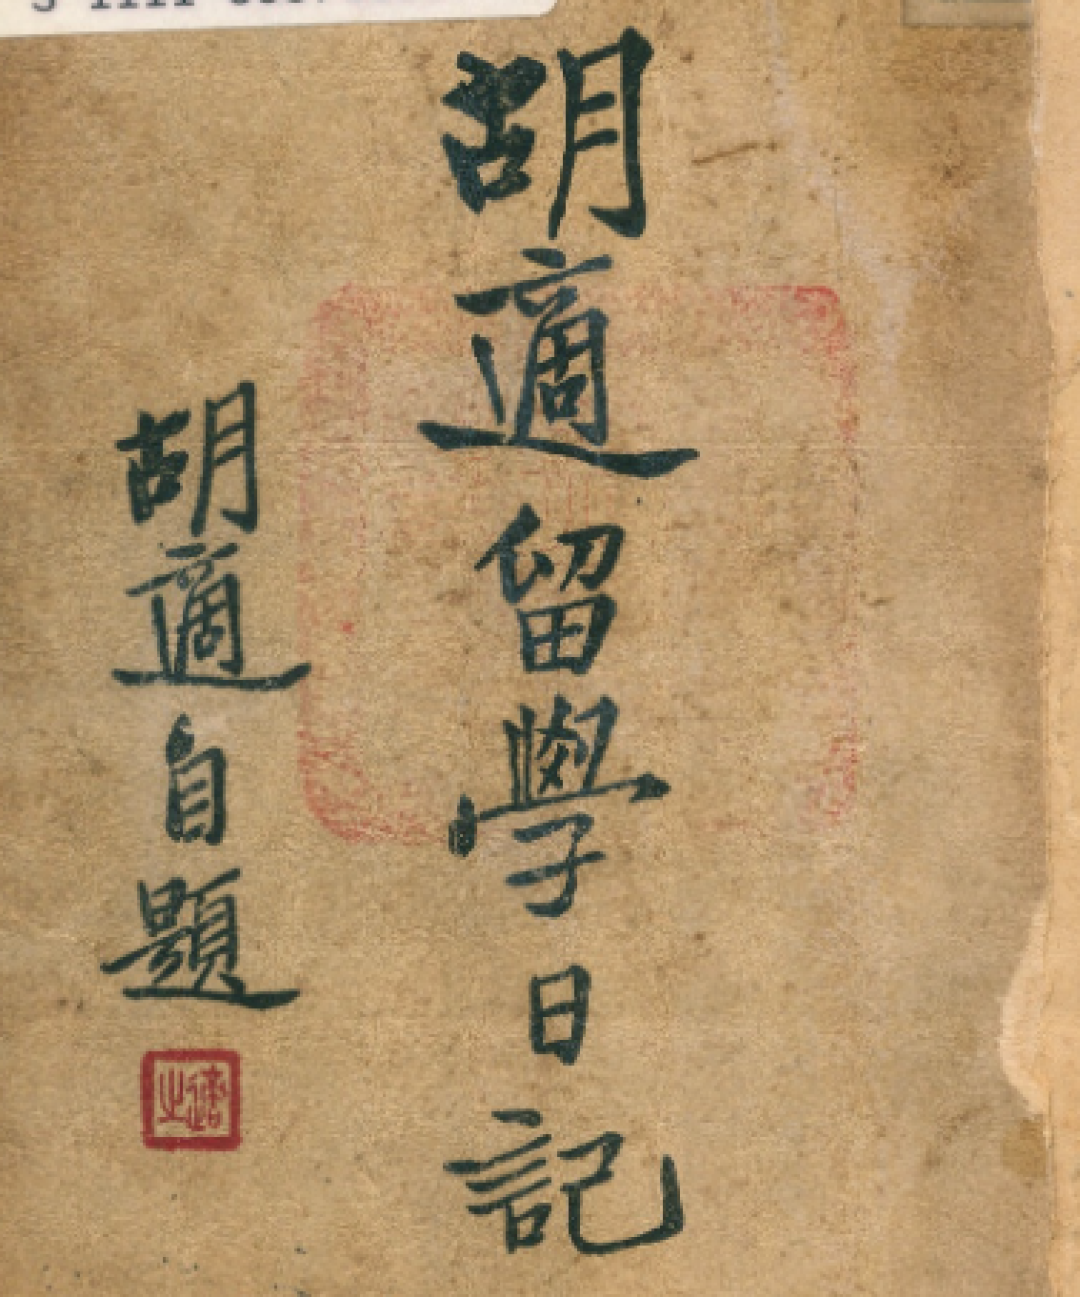 胡適留學日記
胡適自題
適之